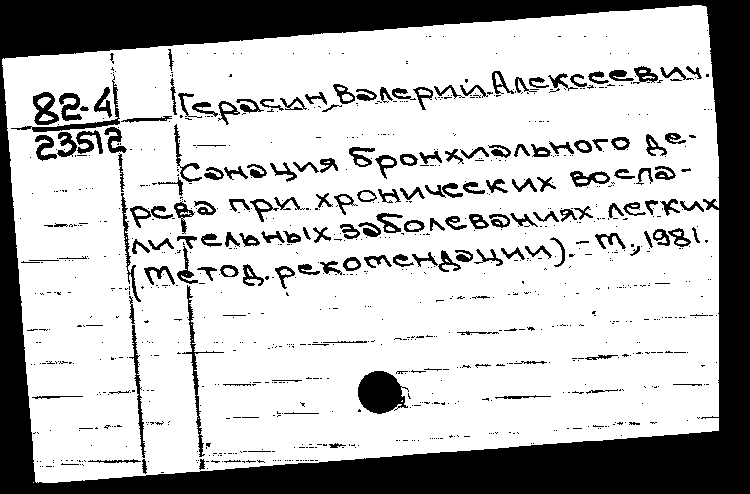 82-4
23512
Герасин, Валерий Алексеевич.
Санация бронхиального де-
рева при хронических воспа-
лительных заболеваниях легких
(Метод. рекомендации). - М., 1981.